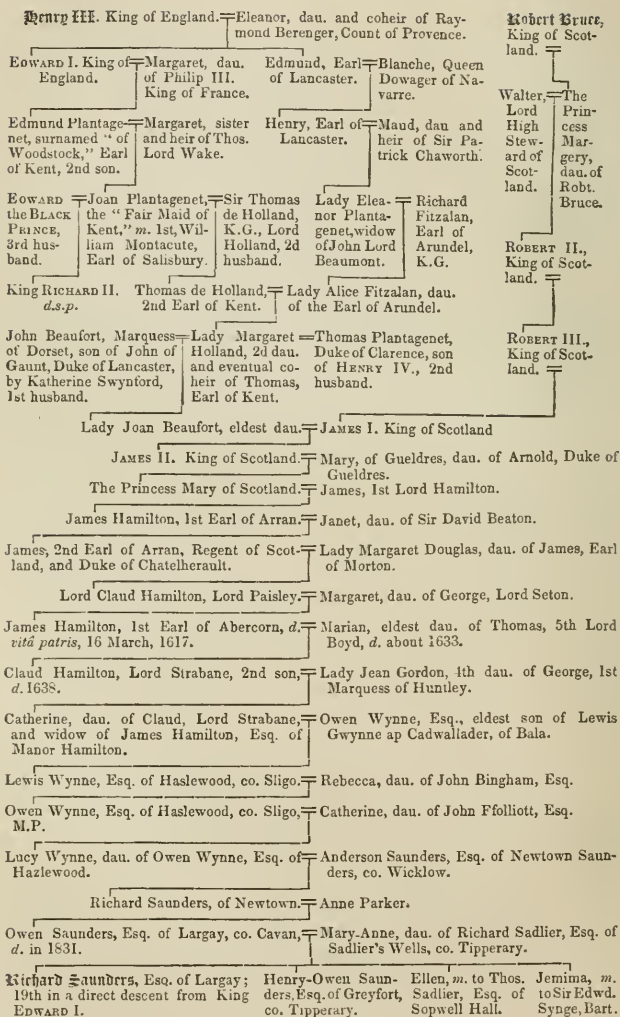 Henry III. King of England. Eleanor, dau. and coheir of Ray-
mond Berenger, Count of Provence.
Robert Bruce,
King of Scot-
land.
EDWARD I. King of
England.
Margaret, dau.
of Philip III.
King of France.
Edmund, Earl
of Lancaster.
Blanche, Queen
Dowager of Na-
varre.
Walter,
Lord
High
Stew-
ard of
Scot-
land.
The
Prin-
cess
Mar-
gery,
dau. of
Robt.
Bruce.
Edmund Plantage-
net, surnamed "of
Woodstock," Earl
of Kent, 2nd son.
Margaret, sister
and heir of Thos.
Lord Wake.
Henry, Earl of
Lancaster.
Maud, dau and
heir of Sir Pa-
trick Chaworth.
EDWARD
the BLACK
PRINCE,
3rd hus-
band.
Joan Plantagenet,
the "Fair Maid of
Kent," m. 1st, Wil-
liam Montacute,
Earl of Salisbury.
Sir Thomas
de Holland,
K.G., Lord
Holland, 2d
husband.
Lady Elea-
nor Planta-
genet, widow
of John Lord
Beaumont.
Richard
Fitzalan,
Earl of
Arundel,
K.G.
ROBERT II.,
King of Scot-
land.
King RICHARD II.
d.s.p.
Thomas de Holland,
2nd Earl of Kent.
Lady Alice Fitzalan, dau.
of the Earl of Arundel.
John Beaufort, Marquess
of Dorset, son of John of
Gaunt, Duke of Lancaster,
by Katherine Swynford,
1st husband.
Lady Margaret
Holland, 2d dau.
and eventual co-
heir of Thomas,
Earl of Kent.
Thomas Plantagenet,
Duke of Clarence, son
of HENRY IV., 2nd
husband.
ROBERT III.,
King of Scot-
land.
Lady Joan Beaufort, eldest dau. JAMES I. King of Scotland
JAMES II. King of Scotland. Mary, of Gueldres, dau. of Arnold, Duke of
Gueldres.
The Princess Mary of Scotland. James, 1st Lord Hamilton.
James Hamilton, 1st Earl of Arran. Janet, dau. of Sir David Beaton.
James, 2nd Earl of Arran, Regent of Scot-
land, and Duke of Chatelherault.
Lady Margaret Douglas, dau. of James, Earl
of Morton.
Lord Claud Hamilton, Lord Paisley. Margaret, dau. of George, Lord Seton.
James Hamilton, 1st Earl of Abercorn, d.
vitâ patris, 16 March, 1617.
Marian, eldest dau. of Thomas, 5th Lord
Boyd, d. about 1633.
Claud Hamilton, Lord Strabane, 2nd son,
d. 1638.
Lady Jean Gordon, 4th dau. of George, 1st
Marquess of Huntley.
Catherine, dau. of Claud, Lord Strabane,
and widow of James Hamilton, Esq. of
Manor Hamilton.
Owen Wynne, Esq., eldest son of Lewis
Gwynne ap Cadwallader, of Bala.
Lewis Wynne, Esq. of Haslewood, co. Sligo. Rebecca, dau. of John Bingham, Esq.
Owen Wynne, Esq. of Haslewood, co. Sligo,
M.P.
Catherine, dau. of John Ffolliott, Esq.
Lucy Wynne, dau. of Owen Wynne, Esq. of
Hazlewood.
Anderson Saunders, Esq. of Newtown Saun-
ders, co. Wicklow.
Richard Saunders, of Newtown. Anne Parker.
Owen Saunders, Esq. of Largay, co. Cavan,
d. in 1831.
Mary-Anne, dau. of Richard Sadlier, Esq. of
Sadlier's Wells, co. Tipperary.
Richard Saunders, Esq. of Largay;
19th in a direct descent from King
EDWARD I.
Henry-Owen Saun-
ders, Esq. of Greyfort,
co. Tipperary.
Ellen, m. to Thos.
Sadlier, Esq. of
Sopwell Hall.
Jemima, m.
to Sir Edwd.
Synge, Bart.